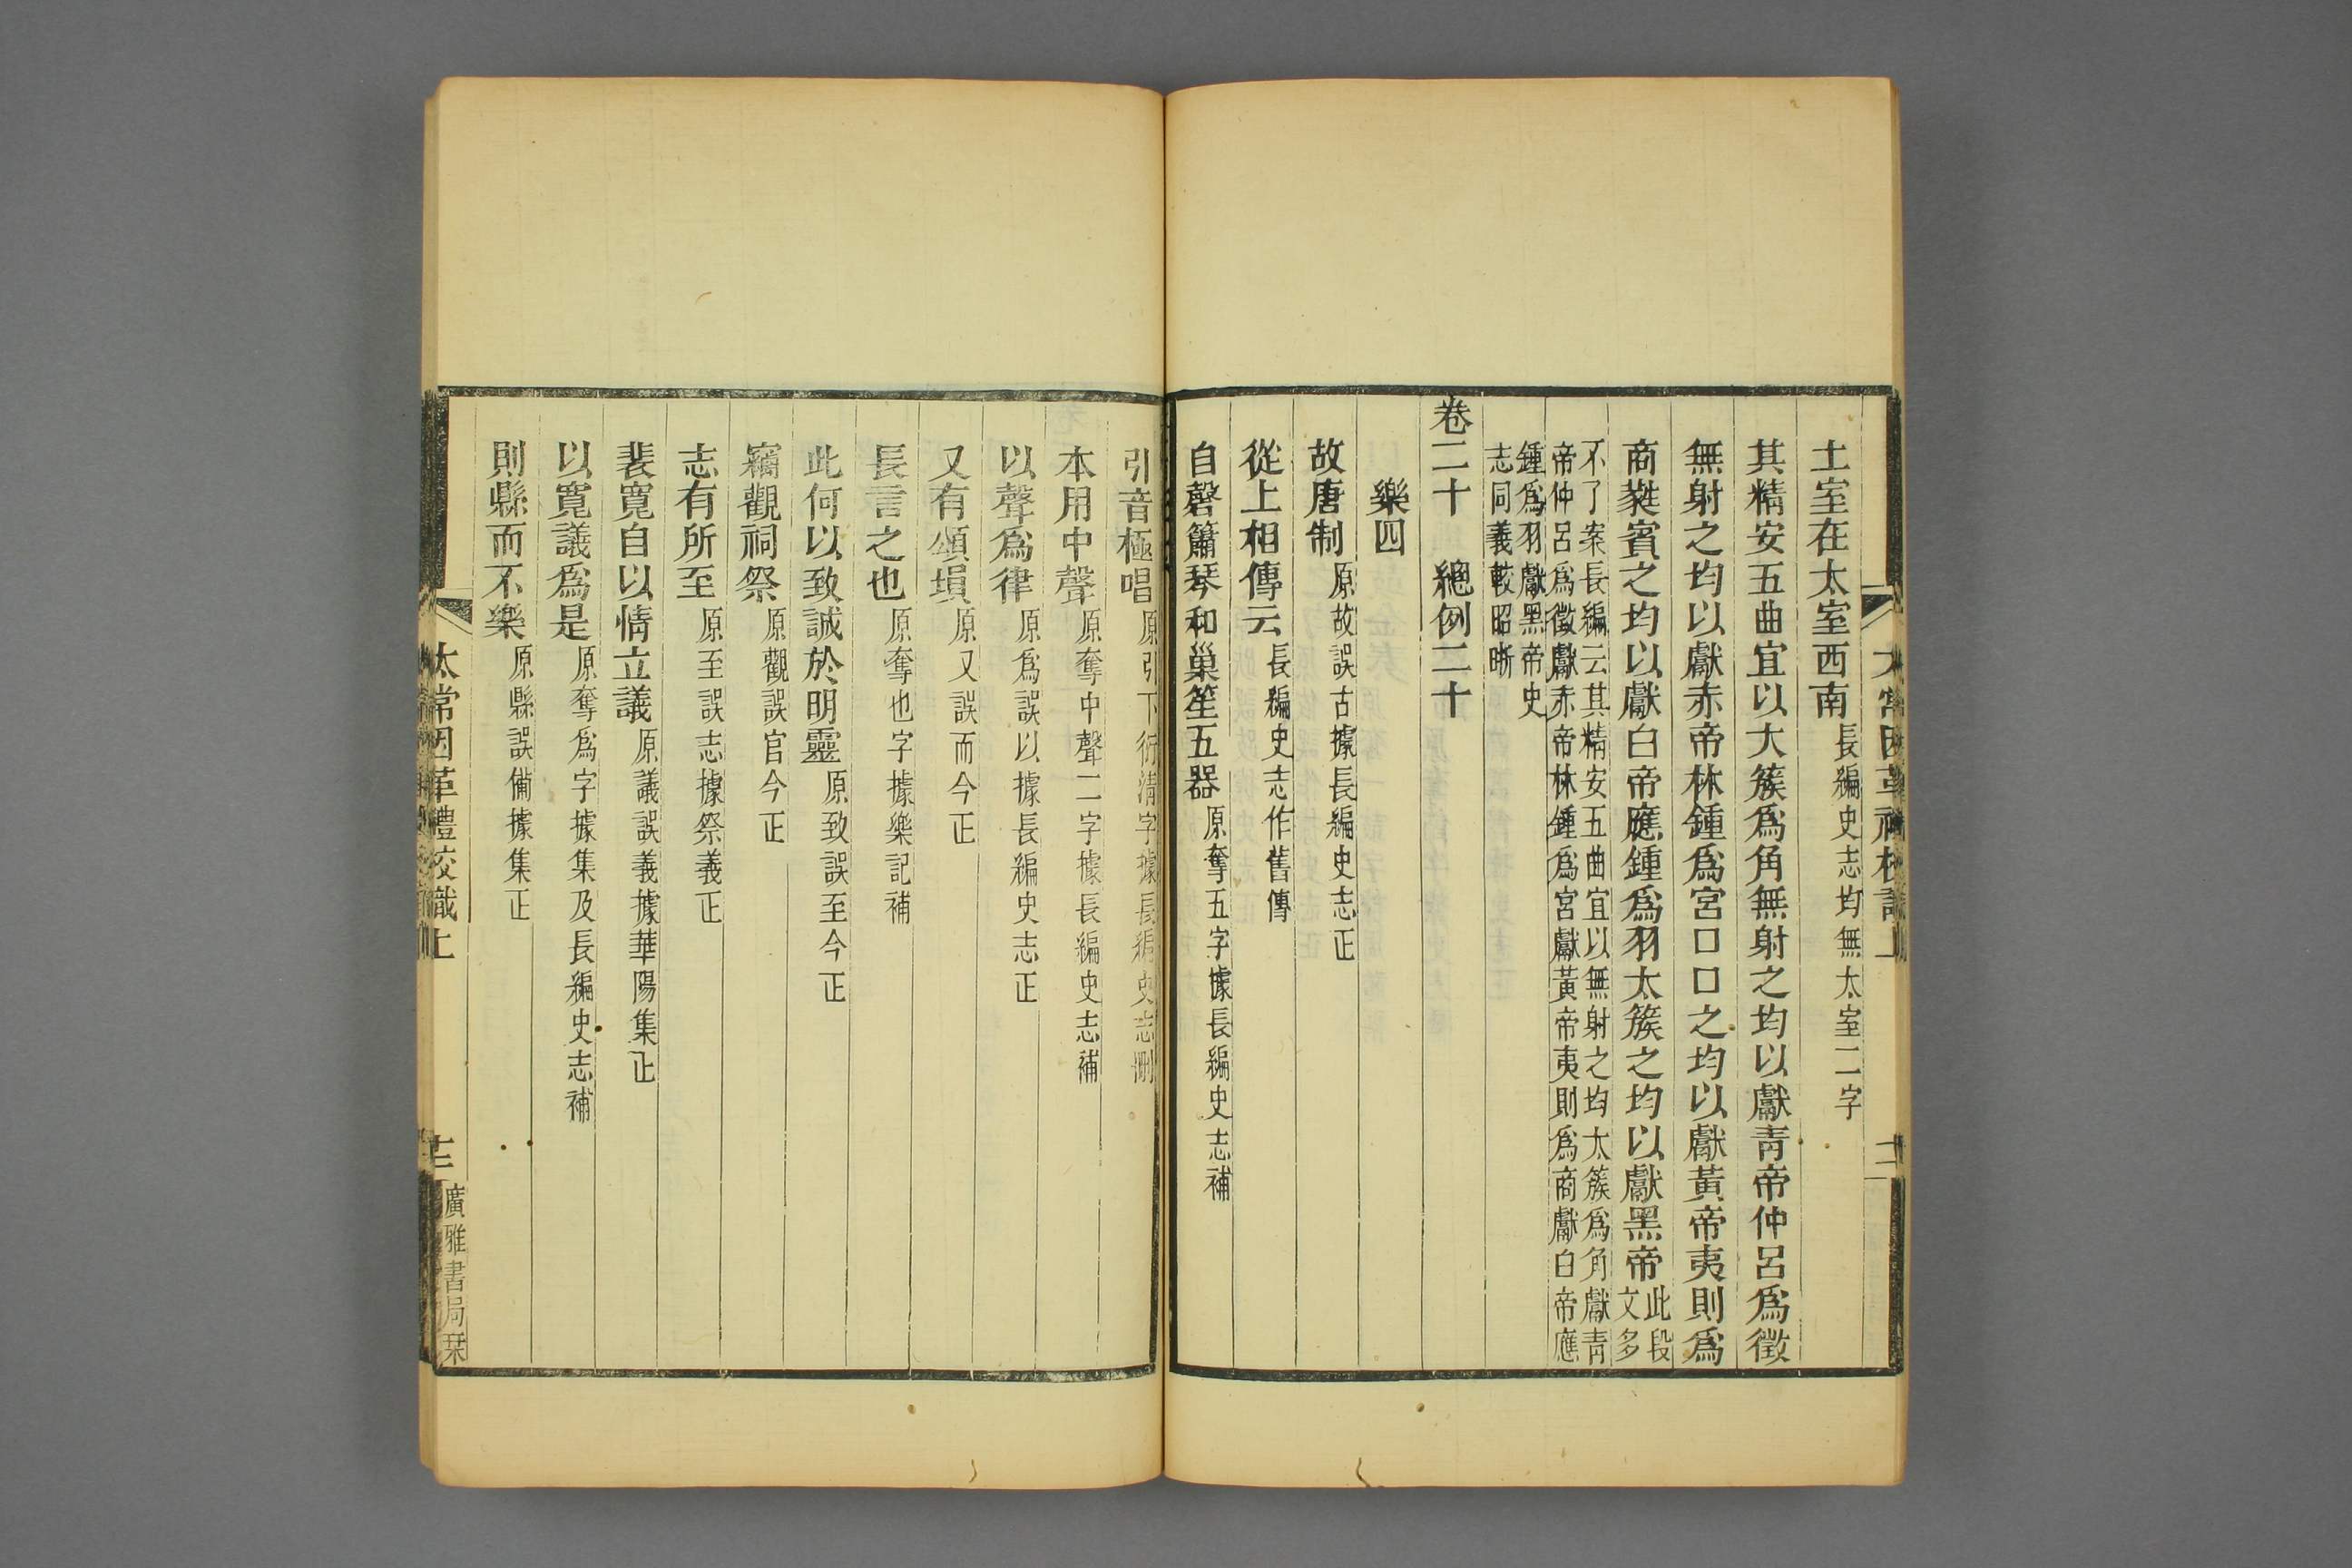 土室在太室西南長編史志均無太室二字
其精安五曲宜以大簇爲角無射之均以獻青帝仲呂爲徵
無射之均以獻赤帝林鍾爲宮口口之均以獻黃帝夷則爲
商蕤賓之均以獻白帝應鍾爲羽太簇之均以獻黑帝此段文多
不了案長編云其精安五曲宜以無射之均太簇爲角獻青
帝仲呂爲徵獻赤帝林鍾爲宮獻黃帝夷則爲商獻白帝應
鍾爲羽獻黑帝史
志同義較昭晰
卷二十　總例二十
樂四
故唐制原故誤古據長編史志正
從上相傳云長編史志作舊傳
自磬簫琴和巢笙五器原奪五字據長編史志補
引音極唱原引下衍清字據長編史志刪
本用中聲原奪中聲二字據長編史志補
以聲爲律原爲誤以據長編史志正
又有頌塤原又誤而今正
長言之也原奪也字據樂記補
此何以致誠於明靈原致誤至今正
竊觀祠祭原觀誤官今正
志有所至原至誤志據祭義正
裴寬自以情立議原議誤義據華陽集正
以寬議爲是原奪爲字據集及長編史志補
則縣而不樂原縣誤備據集正
太常因革禮校識上
十二
廣雅書局栞